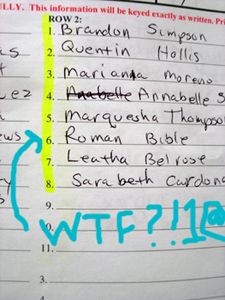 ULLY. This information will be keyed exactly as written. Pri
ROW 2:
1. Brandon Simpson
2. Quentin Hollis
3. Marianna Moreno
4. Annabelle Annabelle S
5. Marquesha Thompson
6. Roman Bible
7. Leatha Belrose
8. Sarabeth Cardona
9.
WTF?!!1@
11.
3.
4.